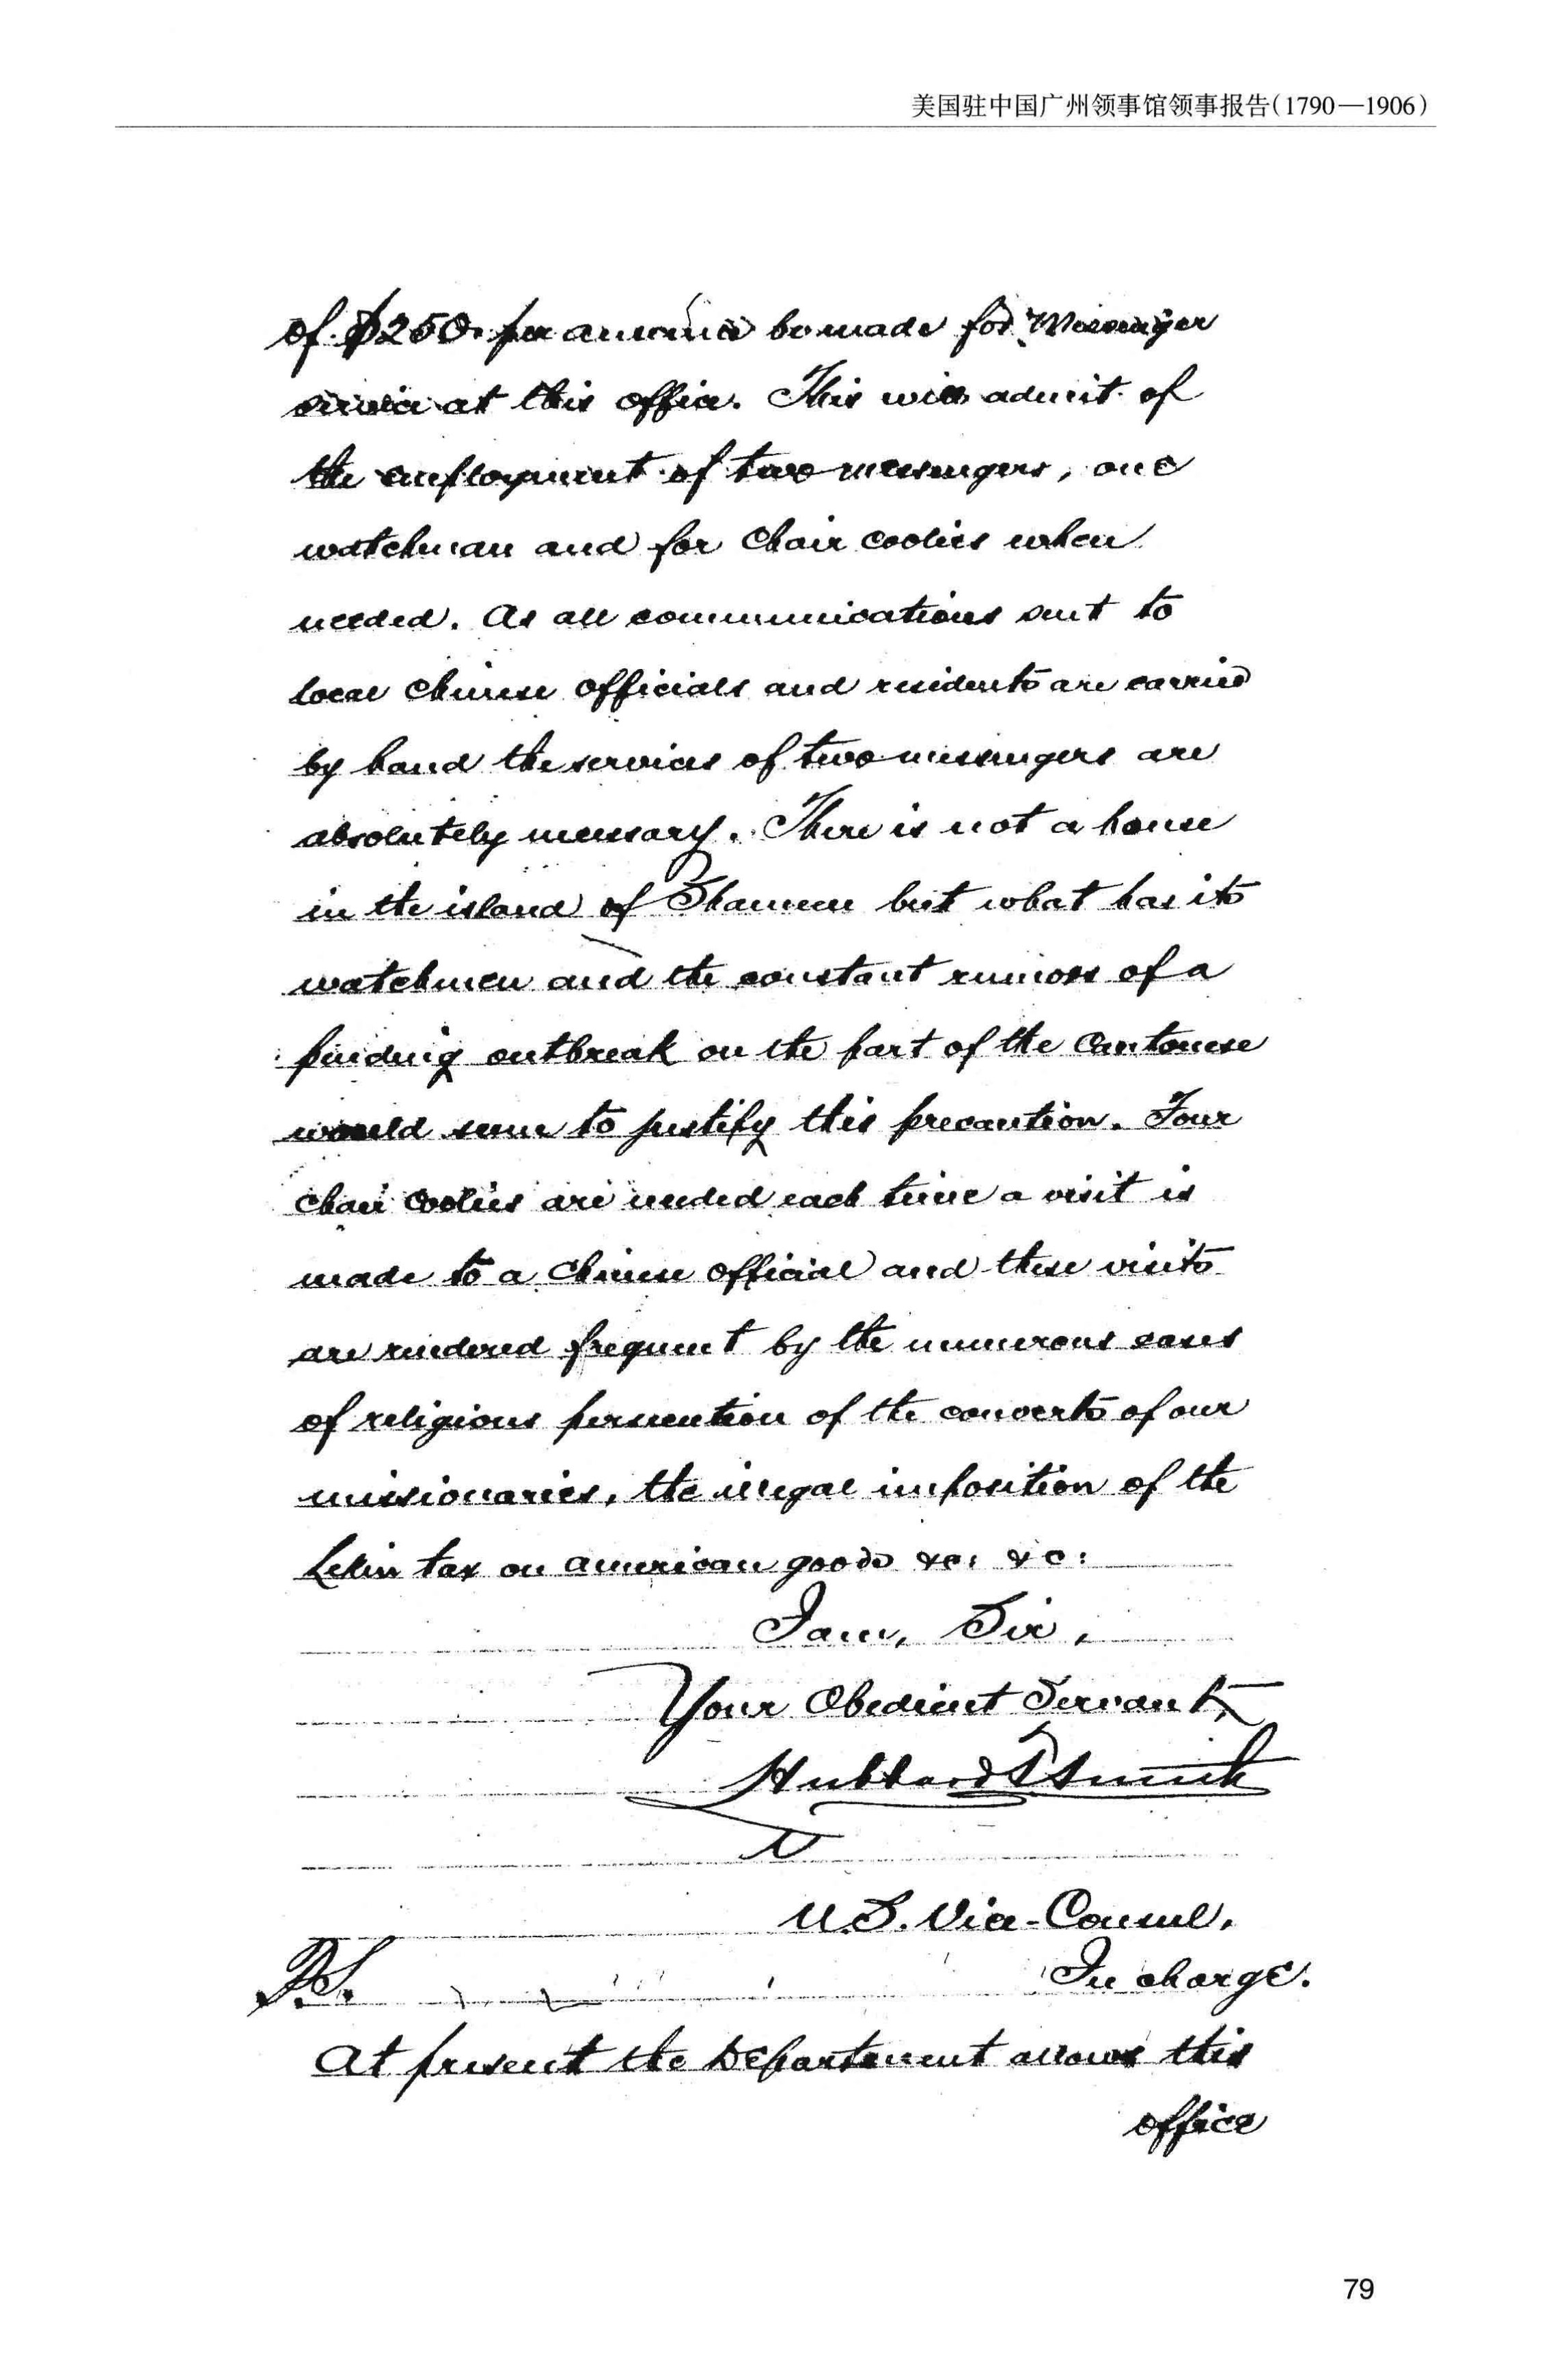 美国驻中国广州领事馆领事报告(1790—1906)
of $250. per annum be made for Messenger
service at this office. This will admit of
the employment of two messengers, one
watchman and for chair coolies when
needed. As all communications sent to
local Chinese officials and residents are carried
by hand the services of two messengers are
absolutely necessary. There is not a house
in the island of Shameen but what has its
watchmen and the constant rumors of a
pending outbreak on the part of the Cantonese
would seem to justify this precaution. Four
chair coolies are needed each time a visit is
made to a Chinese official and these visits
are rendered frequent by the numerous cases
of religious persecution of the converts of our
missionaries, the illegal imposition of the
Lekin tax on American goods &c. &c:
I am, Sir,
Your Obedient Servant,
Hubbard T Smith
U.S. Vice-Consul,
In charge.
P.S.
At present the Department allows this
office
79